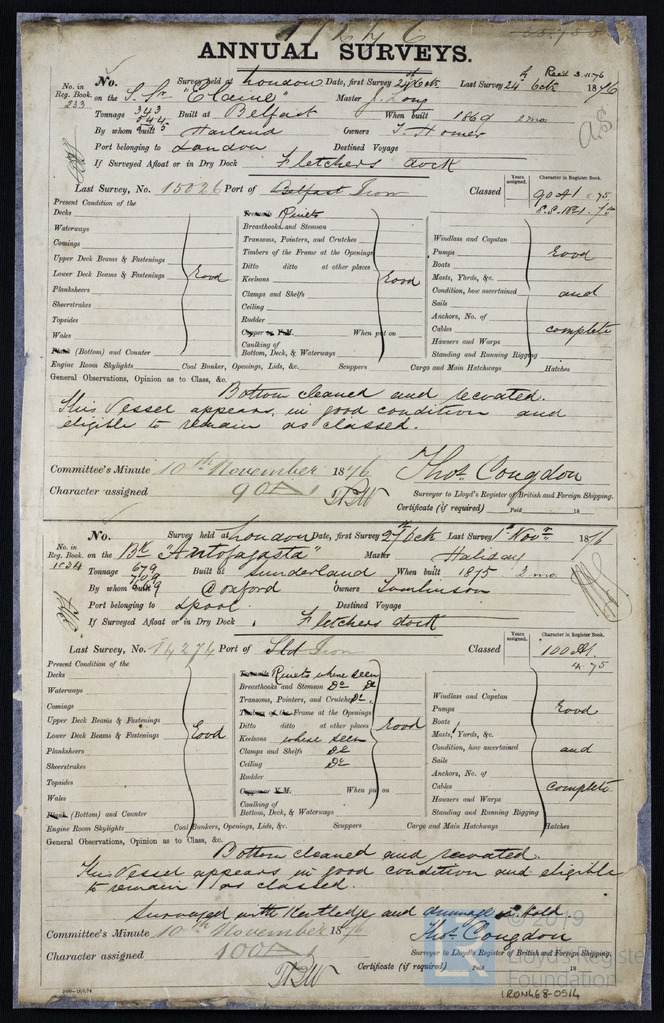 17246
ANNUAL SURVEYS.
No. Survey held at London Date, first Survey 24th Octr Last Survey 24th Octr 1876
Recd 3.11.76
No. in Reg. Book. 233 on the S. Sr "Elaine" Master J. Long
Tonnage 343 544 Built at Belfast When built 1869 2 mo
By whom built Harland Owners T. Homer
Port belonging to London Destined Voyage
If Surveyed Afloat or in Dry Dock Fletchers dock
Last Survey, No. 15026 Port of Belfast Iron Classed
Years assigned. Character in Register Book.
90 A1 .75
S.S. No1. 75
Present Condition of the
Decks
Waterways
Comings
Upper Deck Beams & Fastenings
Lower Deck Beams & Fastenings
Planksheers
Sheerstrakes
Topsides
Wales
Plank (Bottom) and Counter
Good
Treenails Rivets
Breasthooks and Stemson
Transoms, Pointers, and Crutches
Timbers of the Frame at the Openings
Ditto ditto at other places
Keelsons
Clamps and Shelfs
Ceiling
Rudder
Copper or Y.M. When put on
Caulking of Bottom, Deck, & Waterways
Good
Windlass and Capstan
Pumps
Boats
Masts, Yards, &c.
Condition, how ascertained
Sails
Anchors, No. of
Cables
Hawsers and Warps
Standing and Running Rigging
Good and complete
Engine Room Skylights Coal Bunker, Openings, Lids, &c. Scuppers Cargo and Main Hatchways Hatches
General Observations, Opinion as to Class, &c.
Bottom cleaned and recoated.
This Vessel appears in good condition and
eligible to remain as classed.
Committee's Minute 10th November 1876 Thos. Congdon
Character assigned 90 A1 Surveyor to Lloyd's Register of British and Foreign Shipping.
Certificate (if required) Paid 18
No. Survey held at London Date, first Survey 27th Octr Last Survey 1st Novr 1876
No. in Reg. Book. 1034 on the Bk "Antofagasta" Master Haliday
Tonnage 679 709 Built at Sunderland When built 1875 3 mo
By whom built 669 Doxford Owners Tomlinson
Port belonging to Lpool Destined Voyage
If Surveyed Afloat or in Dry Dock Fletchers dock
Last Survey, No. 14274 Port of Sld Iron Classed
Years assigned. Character in Register Book.
100 A1
4.75
Present Condition of the
Decks
Waterways
Comings
Upper Deck Beams & Fastenings
Lower Deck Beams & Fastenings
Planksheers
Sheerstrakes
Topsides
Wales
Plank (Bottom) and Counter
Good
Treenails Rivets where seen
Breasthooks and Stemson Do Do
Transoms, Pointers, and Crutches Do
Timbers of the Frame at the Openings
Ditto ditto at other places
Keelsons where seen
Clamps and Shelfs Do
Ceiling Do
Rudder
Copper or Y.M. When put on
Caulking of Bottom, Deck, & Waterways
Good
Windlass and Capstan
Pumps
Boats
Masts, Yards, &c.
Condition, how ascertained
Sails
Anchors, No. of
Cables
Hawsers and Warps
Standing and Running Rigging
Good and complete
Engine Room Skylights Coal Bunkers, Openings, Lids, &c. Scuppers Cargo and Main Hatchways Hatches
General Observations, Opinion as to Class, &c.
Bottom cleaned and recoated.
This Vessel appears in good condition and eligible
to remain as classed.
Surveyed with Kentledge and dunnage in Hold
Committee's Minute 10th November 1876 Thos. Congdon
Character assigned 100 A1 Surveyor to Lloyd's Register of British and Foreign Shipping.
Certificate (if required) Paid 18
© 2019
Lloyd's Register
Foundation
IRON468-0514